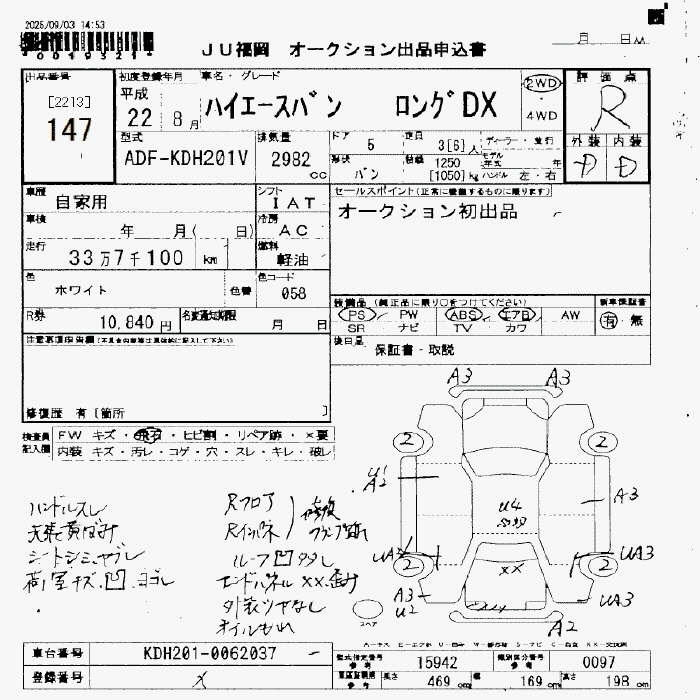 2025/09/03 14:53
00193214
JU福岡 オークション出品申込書
月 日
出品番号
[2213]
147
初度登録年月
平成
22 8月
車名・グレード
ハイエースバン ロングDX
2WD
・
4WD
評価点
R
型式
ADF-KDH201V
排気量
2982 cc
ドア 5
形状 バン
定員 3[6]人
積載 1250
[1050]kg
ディーラー・並行
モデル年式 年
ハンドル 左・右
外装 内装
D D
車歴
自家用
シフト
IAT
セールスポイント(正常に機能するものに限ります)
オークション初出品
車検
年 月( 日)
冷房
AC
走行
33万7千100 km
燃料
軽油
色
ホワイト 色替
色コード
058
装備品(純正品に限り○をつけてください)
PS PW ABS エアB AW
SR ナビ TV カワ
新車保証書
有・無
R券
10,840円
名変通知期限
月 日
後日品 保証書・取説
注意事項申告欄(不具合箇所等は具体的に記入して下さい)
修復歴 有[箇所 ]
検査員記入欄
FW キズ・飛石・ヒビ割・リペア跡・×要
内装 キズ・汚レ・コゲ・穴・スレ・キレ・破レ
ハンドルスレ
天張黄ばみ
シートシミ、ヤブレ
荷室キズ、凹、ヨゴレ
Rフロア
Rインパネ
ルーフ凹タタレ
エンドパネル××歪み
外装ツヤなし
オイルもれ
A3 A3
2 2
U1
A2
U4
A3
UA3 UA3
2 2
XX
A3
U2
UA3
A2
スペア
車台番号 KDH201-0062037
登録番号
型式指定番号 参考 15942
類別区分番号 参考 0097
長さ 469cm 幅 169cm 高さ 198cm